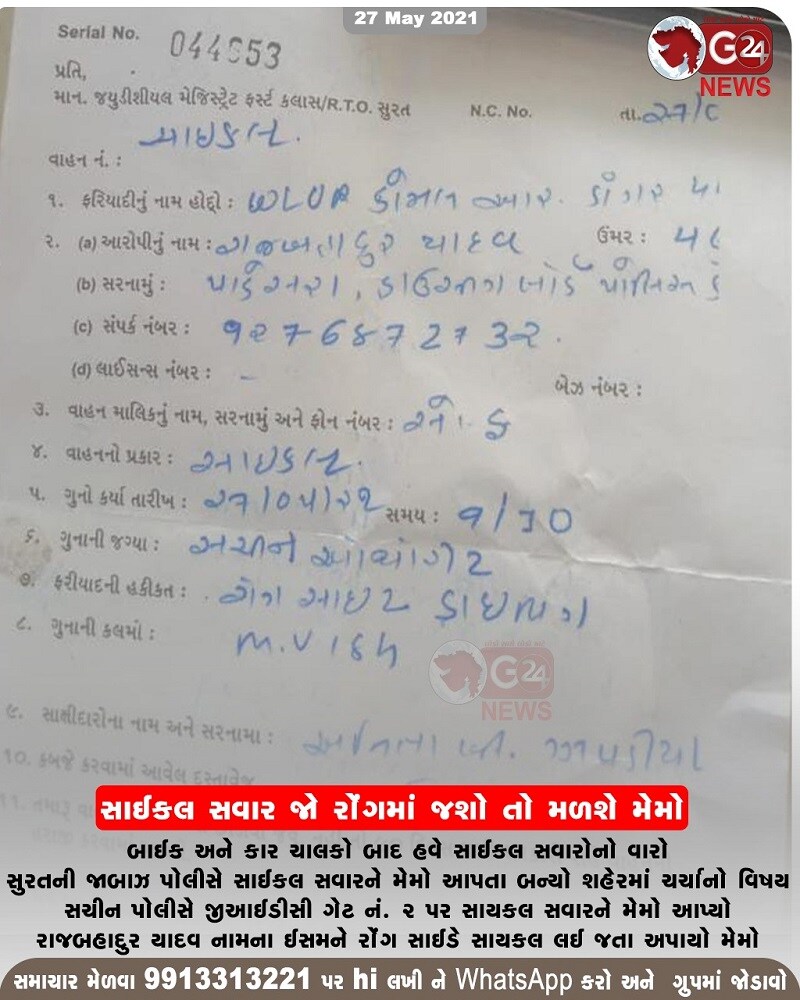 27 May 2021
G24
NEWS
Serial No. 044653
પ્રતિ,
માન. જયુડીશીયલ મેજિસ્ટ્રેટ ફર્સ્ટ કલાસ/R.T.O. સુરત N.C. No. તા.
સાઇકલ.
વાહન નં. :
૧. ફરિયાદીનું નામ હોદ્દો :
૨. (a) આરોપીનું નામ : રાજબહાદુર યાદવ ઉંમર :
(b) સરનામું :
(c) સંપર્ક નંબર :
(d) લાઈસન્સ નંબર : –
બેઝ નંબર :
૩. વાહન માલિકનું નામ, સરનામું અને ફોન નંબર :
૪. વાહનનો પ્રકાર : સાઇકલ.
૫. ગુનો કર્યા તારીખ : ૨૭/૦૫/૨૧ સમય :
૬. ગુનાની જગ્યા : સચીન
૭. ફરીયાદની હકીકત : રોંગ સાઇટ ડ્રાઇવીંગ
૮. ગુનાની કલમો : M.V
G24
NEWS
૯. સાક્ષીદારોના નામ અને સરનામા :
10. કબજે કરવામાં આવેલ દસ્તાવેજ
સાઈકલ સવાર જો રોંગમાં જશો તો મળશે મેમો
બાઈક અને કાર ચાલકો બાદ હવે સાઈકલ સવારોનો વારો
સુરતની જાબાઝ પોલીસે સાઈકલ સવારને મેમો આપતા બન્યો શહેરમાં ચર્ચાનો વિષય
સચીન પોલીસે જીઆઈડીસી ગેટ નં. ૨ પર સાયકલ સવારને મેમો આપ્યો
રાજબહાદુર યાદવ નામના ઈસમને રોંગ સાઈડે સાયકલ લઈ જતા અપાયો મેમો
સમાચાર મેળવા 9913313221 પર hi લખી ને WhatsApp કરો અને ગ્રુપમાં જોડાવો